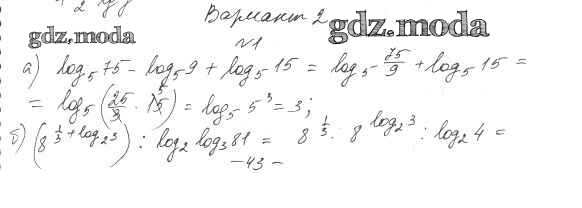 Вариант 2
gdz.moda gdz.moda
№1
а) log₅75 - log₅9 + log₅15 = log₅ 75/9 + log₅15 =
= log₅(25/3 · 15) = log₅ 5³ = 3;
б) (8^(1/3 + log₂3)) : log₂ log₃ 81 = 8^(1/3) · 8^(log₂3) : log₂4 =
- 43 -